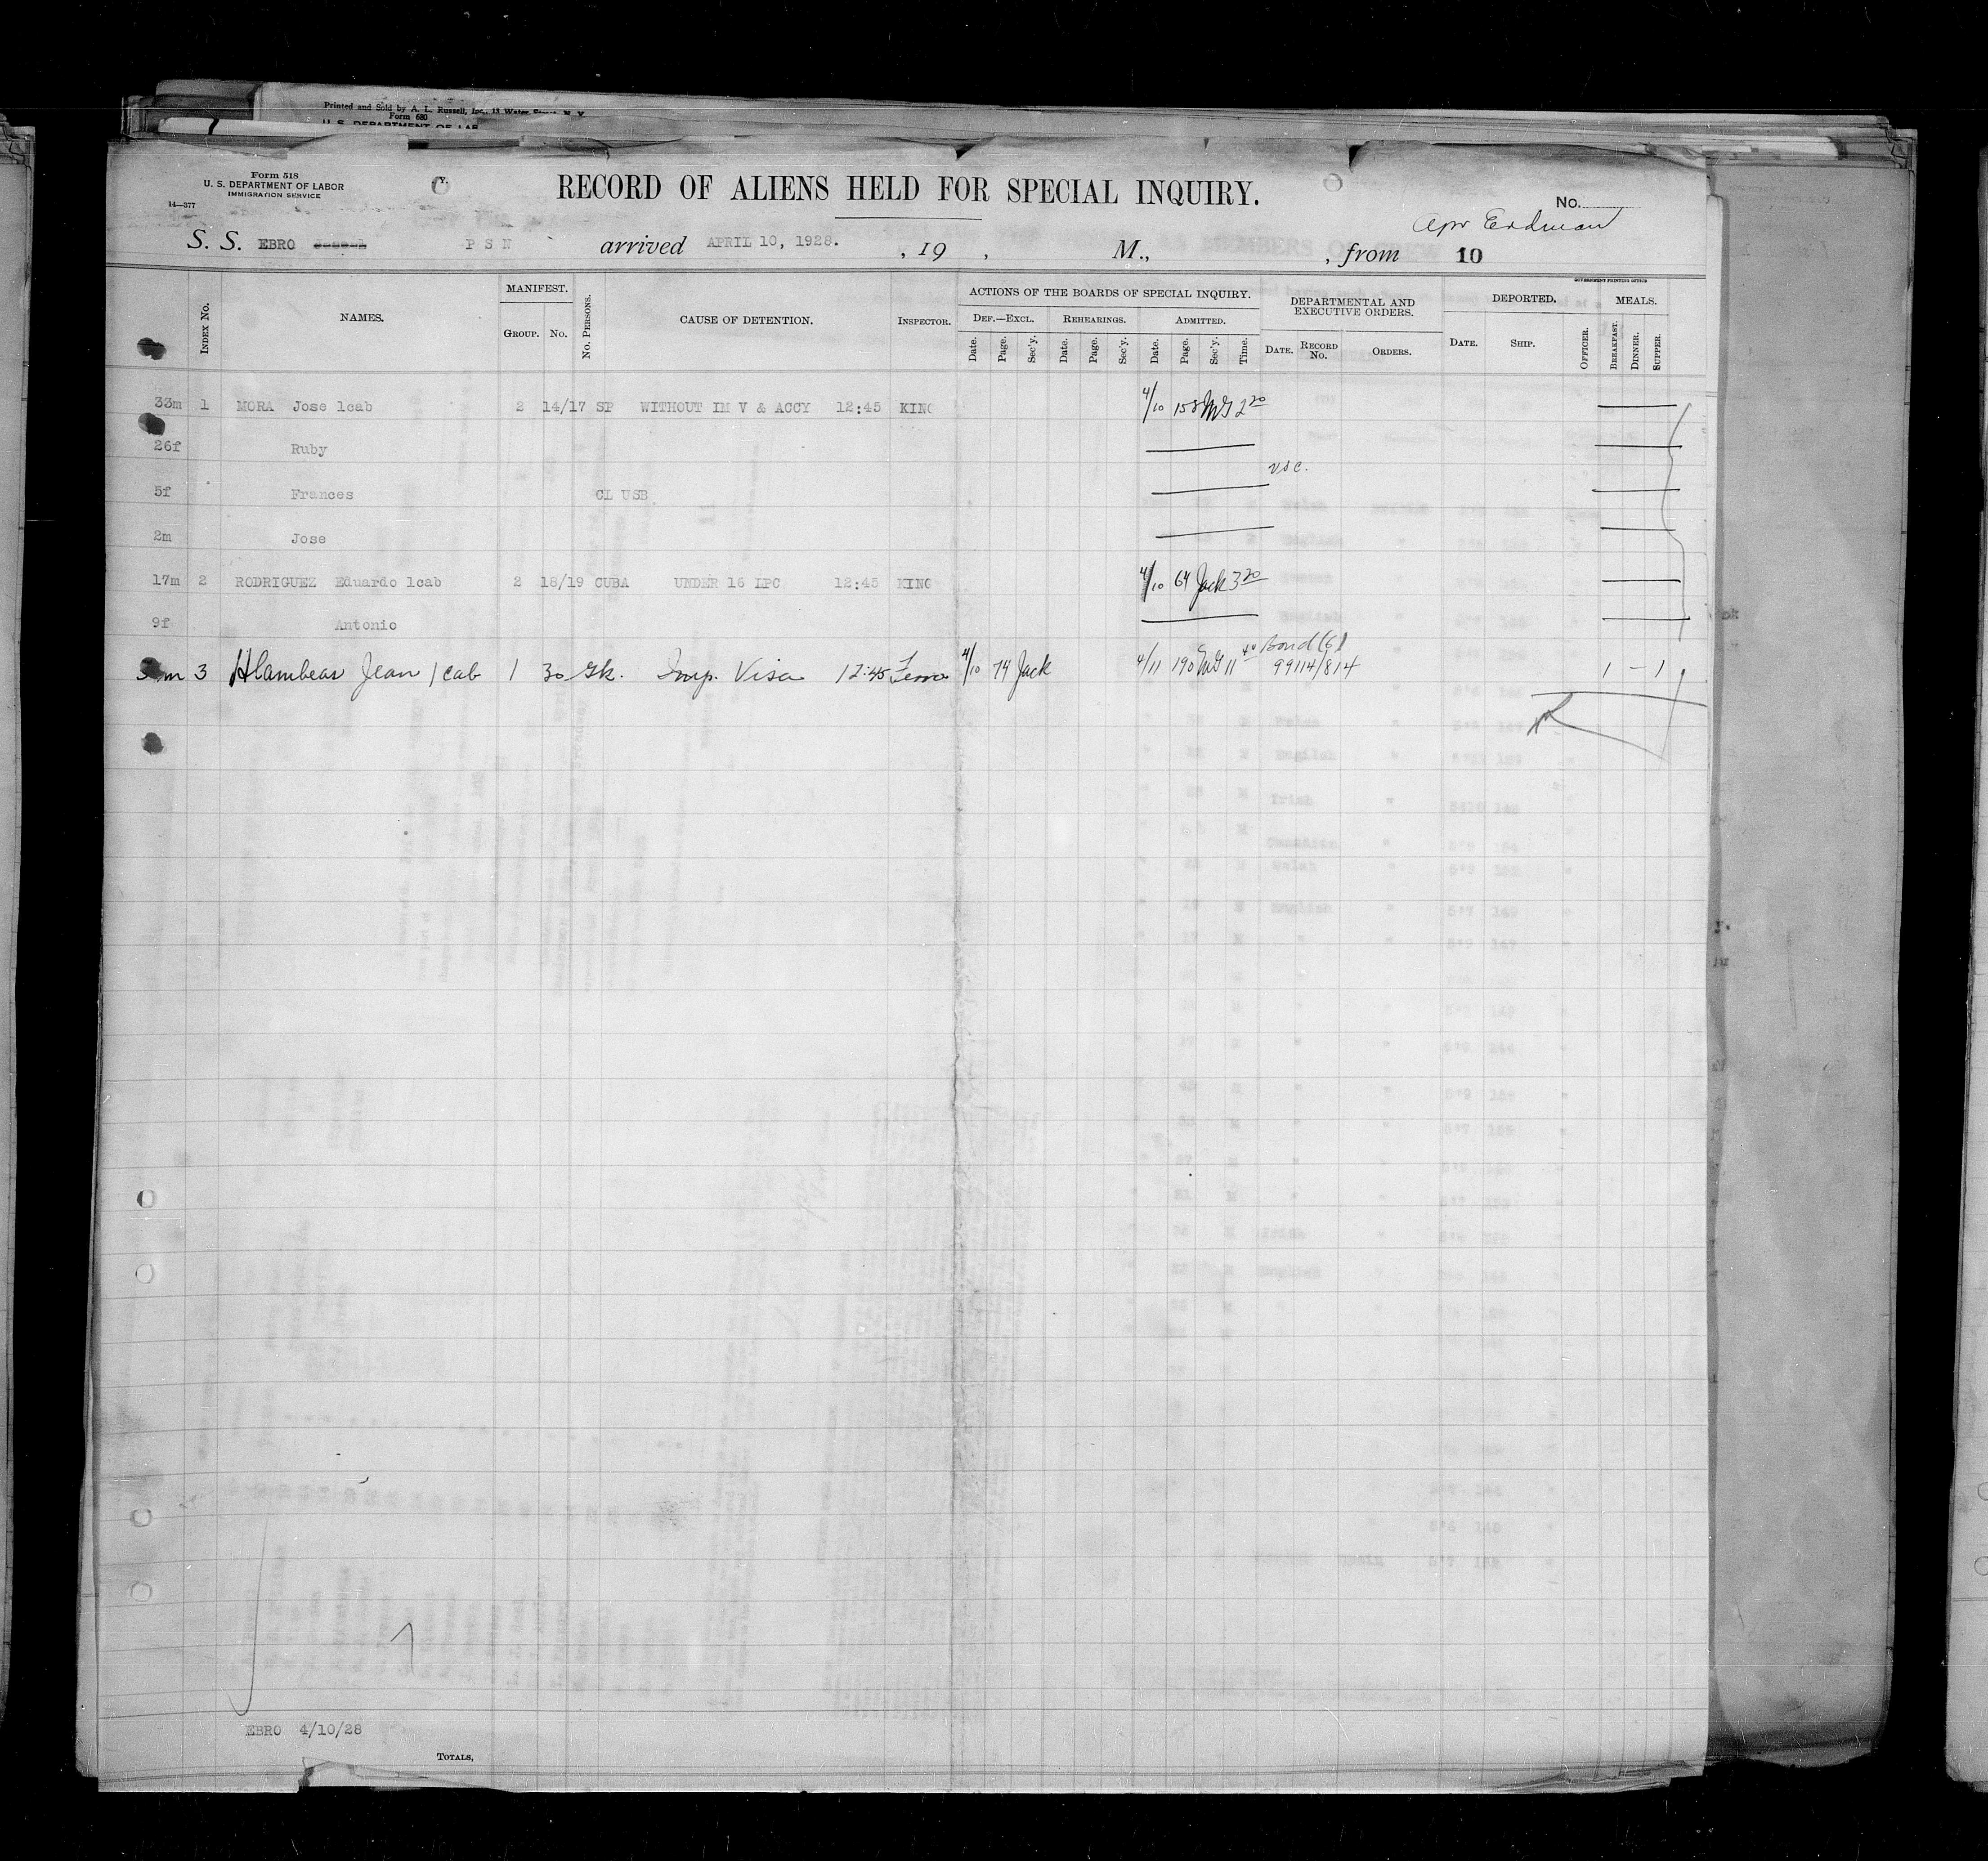 Printed and Sold by A. L. Russell, Inc., 13 Water Street, N. Y.
Form 680
U. S. DEPARTMENT OF LAB
Form 518
U. S. DEPARTMENT OF LABOR
IMMIGRATION SERVICE
14—377
RECORD OF ALIENS HELD FOR SPECIAL INQUIRY.
No.
Apr Erdman
S. S. EBRO P S N arrived APRIL 10, 1928. , 19 , M., , from 10
GOVERNMENT PRINTING OFFICE
INDEX No. NAMES. MANIFEST. GROUP. No. No. PERSONS. CAUSE OF DETENTION. INSPECTOR. ACTIONS OF THE BOARDS OF SPECIAL INQUIRY. DEPARTMENTAL AND EXECUTIVE ORDERS. DEPORTED. MEALS.
DEF.—EXCL. REHEARINGS. ADMITTED.
Date. Page. Sec'y. Date. Page. Sec'y. Date. Page. Sec'y. Time. DATE. RECORD No. ORDERS. DATE. SHIP. OFFICER. BREAKFAST. DINNER. SUPPER.
33m 1 MORA Jose 1cab 2 14/17 SP WITHOUT IM V & ACCY 12:45 KING 4/10 158 McG 2 20
26f Ruby
usc.
5f Frances CL USB
2m Jose
17m 2 RODRIGUEZ Eduardo 1cab 2 18/19 CUBA UNDER 16 LPC 12:45 KING 4/10 64 Jack 3 20
9f Antonio
m 3 Hlambeas Jean 1 cab 1 30 Gk. Imp. Visa 12:45 4/10 74 Jack 4/11 190 McG 11 40 Bond 99114/814 1 — 1
EBRO 4/10/28
TOTALS,